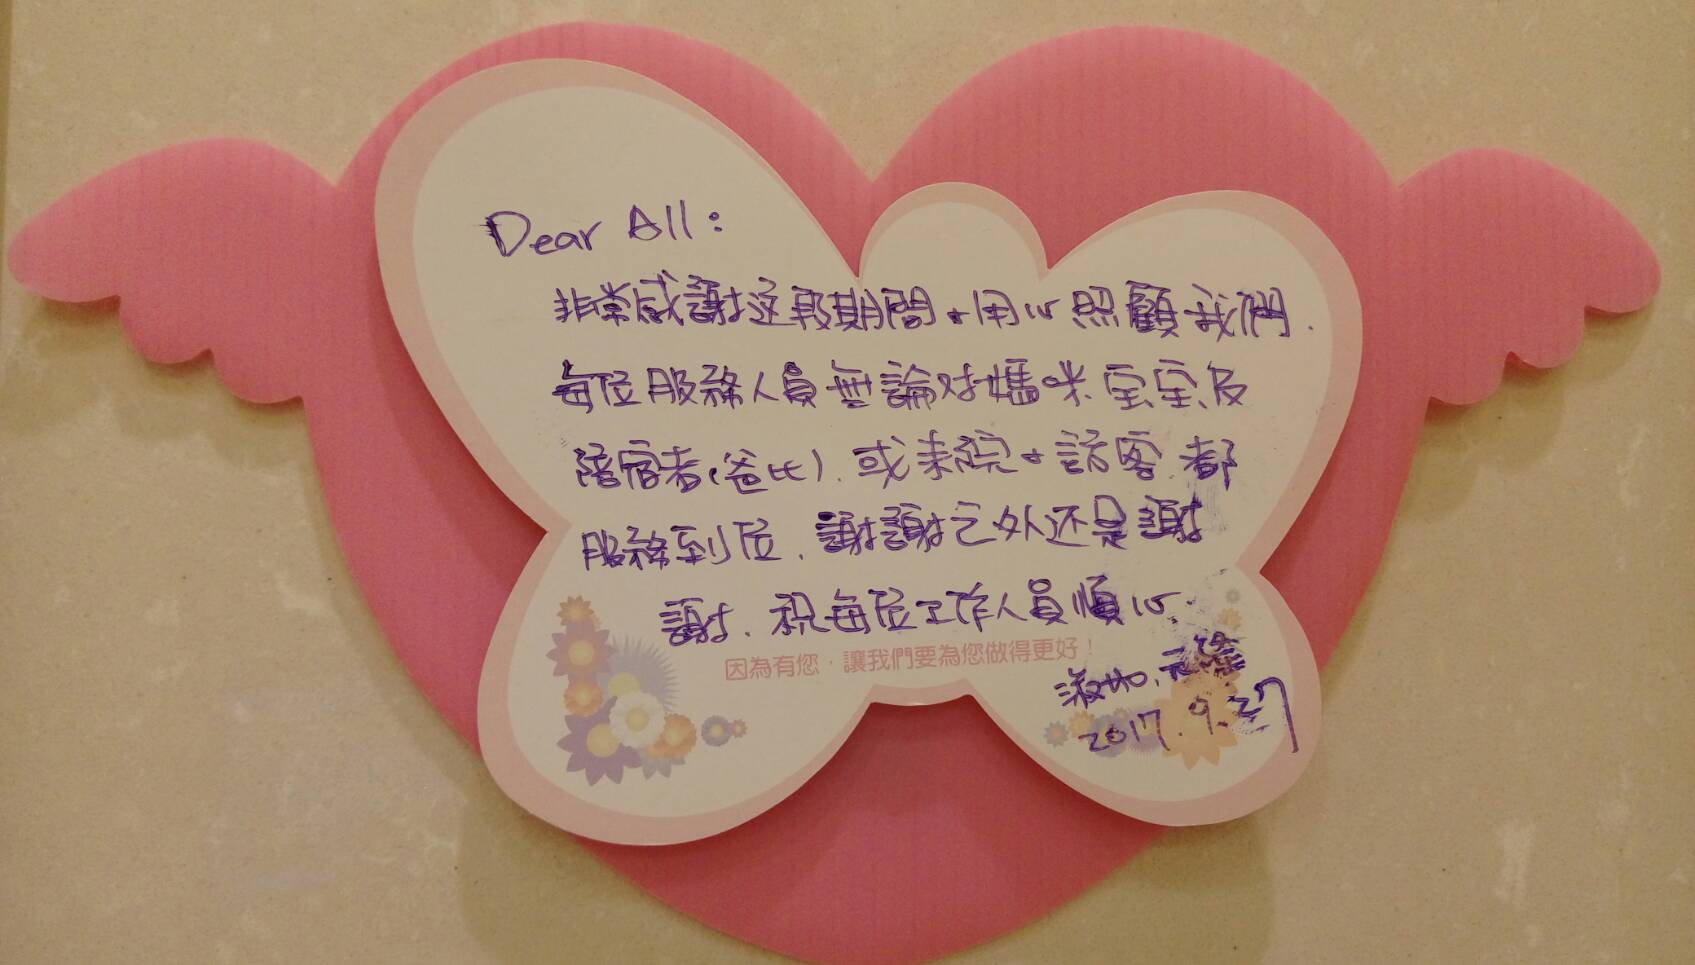 Dear All:
非常感謝這段期間の用心照顧我們.
每位服務人員無論对媽咪.宝宝及
陪宿者(爸比).或来院の訪客.都
服務到位.謝謝之外还是謝
謝.祝每位工作人員順心.
因為有您，讓我們要為您做得更好！
淑如.元隆
2017.9.27